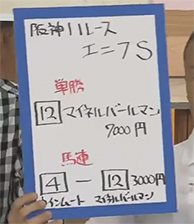 阪神11レース
エニフS
単勝
12 マイネルバールマン
7000円
馬連
4 － 12 3000円
ウインムート マイネルバールマン